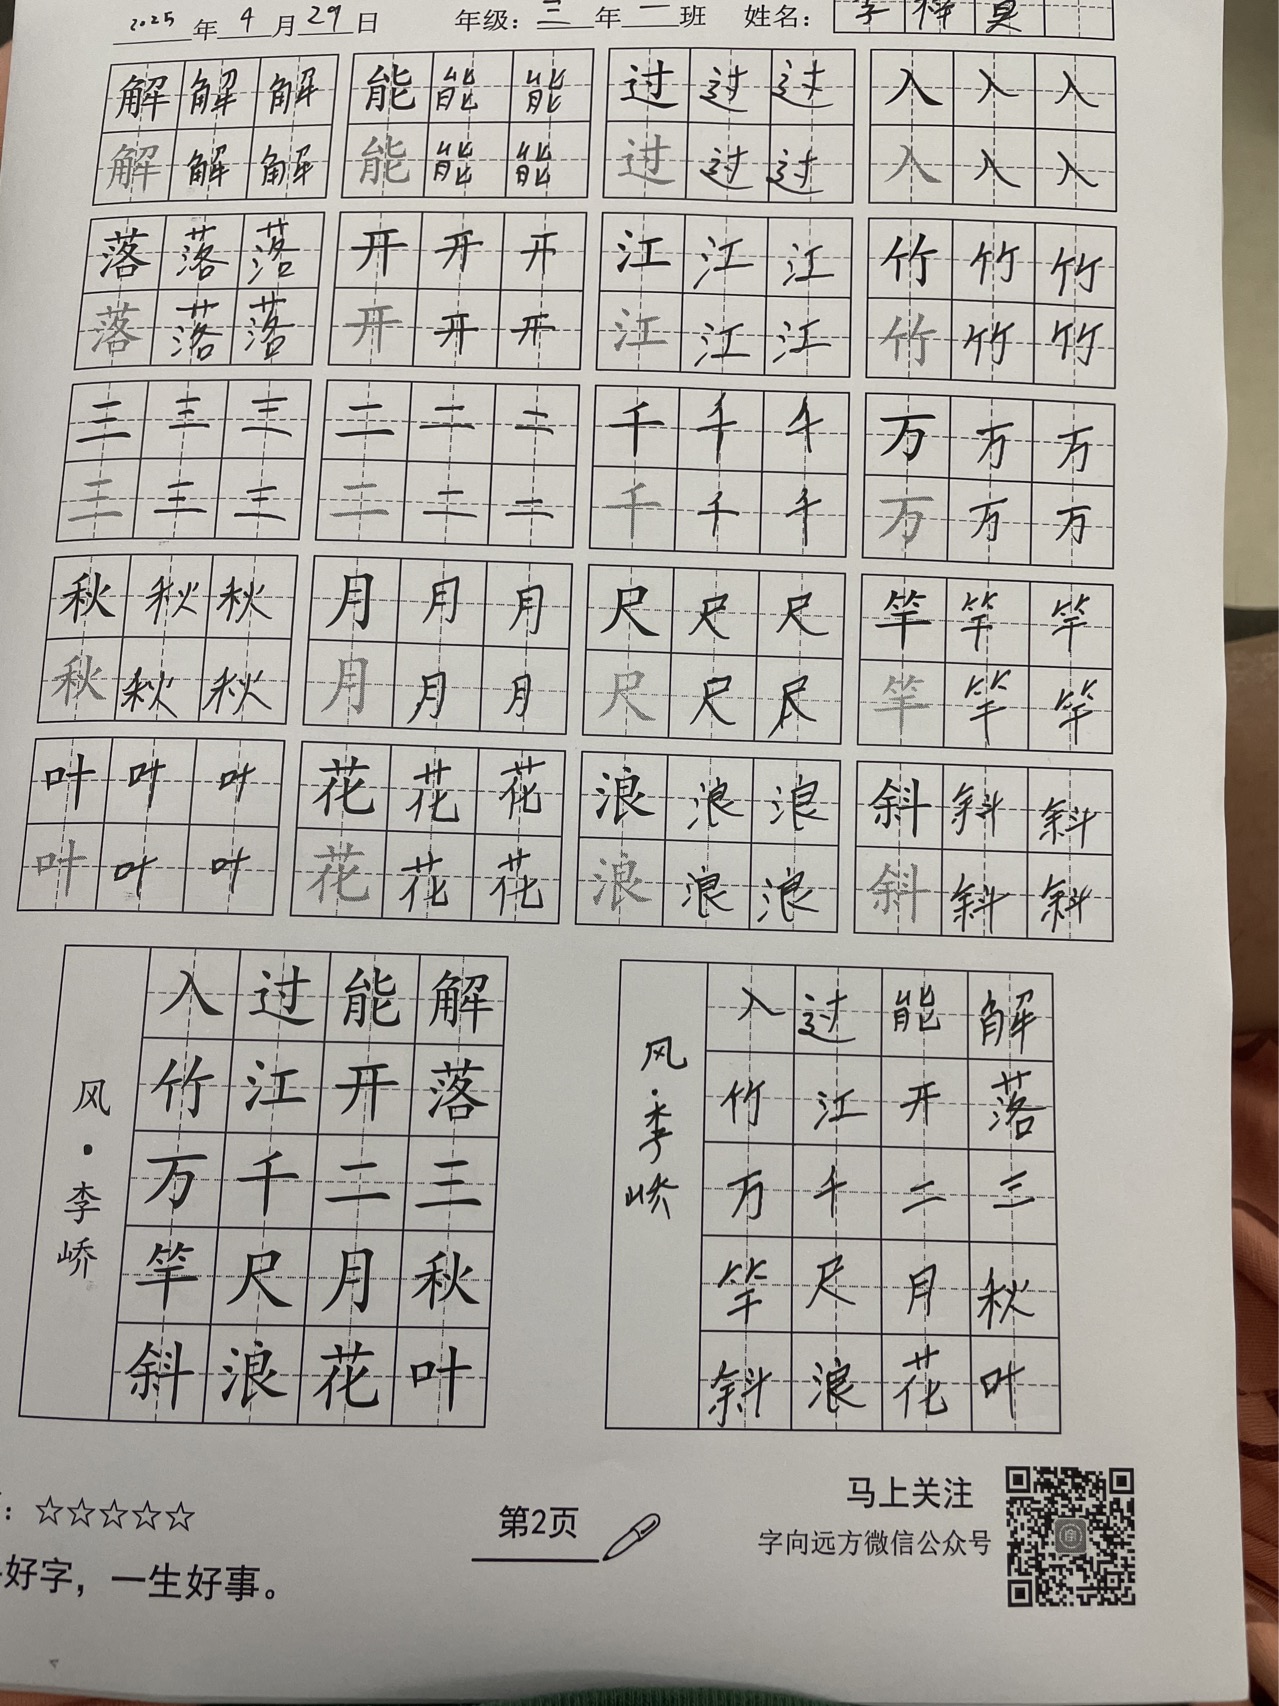 2025年4月29日 年级：三年一班 姓名：
解解解 能能能 过过过 入入入
解解解 能能能 过过过 入入入
落落落 开开开 江江江 竹竹竹
落落落 开开开 江江江 竹竹竹
三三三 二二二 千千千 万万万
三三三 二二二 千千千 万万万
秋秋秋 月月月 尺尺尺 竿竿竿
秋秋秋 月月月 尺尺尺 竿竿竿
叶叶叶 花花花 浪浪浪 斜斜斜
叶叶叶 花花花 浪浪浪 斜斜斜
解落三秋叶
能开二月花
过江千尺浪
入竹万竿斜
风·李峤
解落三秋叶
能开二月花
过江千尺浪
入竹万竿斜
风·李峤
：☆☆☆☆☆
好字，一生好事。
第2页
马上关注
字向远方微信公众号